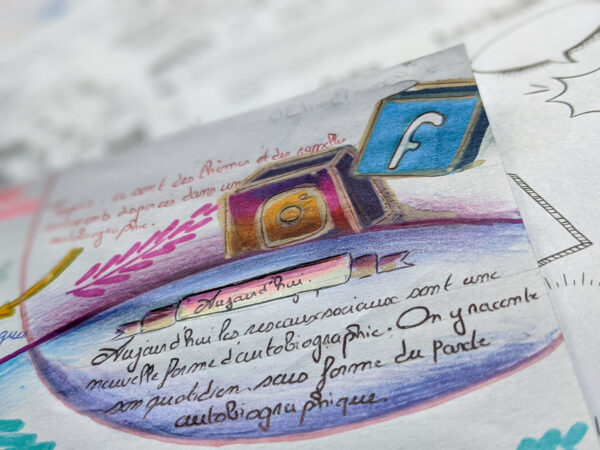 sont des thèmes et des
dans un
autobiographie.
f
Aujourd'hui.
Aujourd'hui les reseaux sociaux sont une
nouvelle forme d'autobiographie. On y raconte
son quotidien sous forme du pacte
autobiographique.